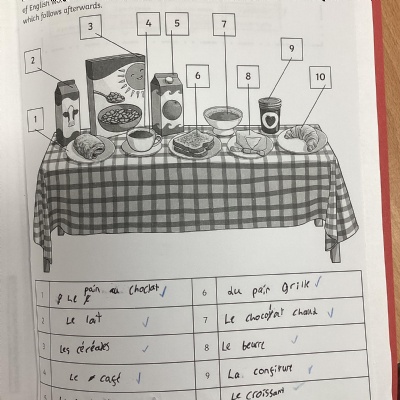 of English
which follows afterwards.
3
4
5
7
2
9
6
8
10
1
1 Le pain au choclat
6 du pain grille
2 Le lait
7 Le chocolat chaud
3 Les céréales
8 Le beurre
4 Le café
9 La confiture
Le croissant